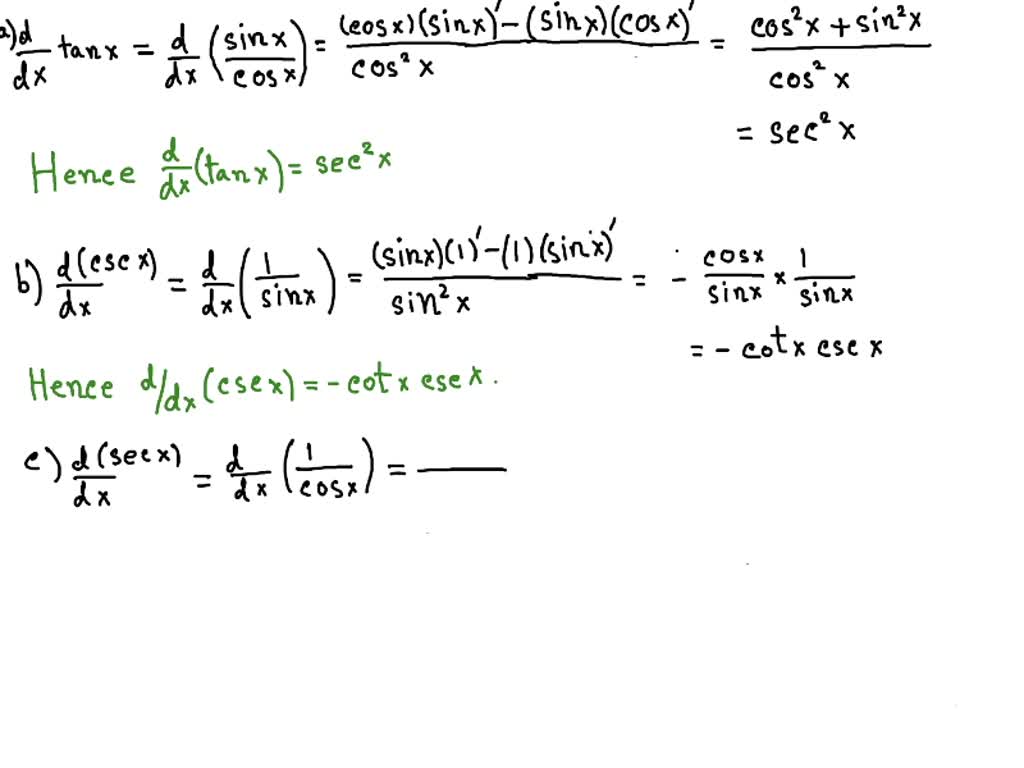 a) d/dx tan x = d/dx (sin x / cos x) = ((cos x)(sin x)' - (sin x)(cos x)') / cos² x = (cos² x + sin² x) / cos² x
= sec² x
Hence d/dx (tan x) = sec² x
b) d(csc x)/dx = d/dx (1 / sin x) = ((sin x)(1)' - (1)(sin x)') / sin² x = - cos x / sin x × 1 / sin x
= - cot x csc x
Hence d/dx (csc x) = - cot x csc x.
c) d(sec x)/dx = d/dx (1 / cos x) = ―